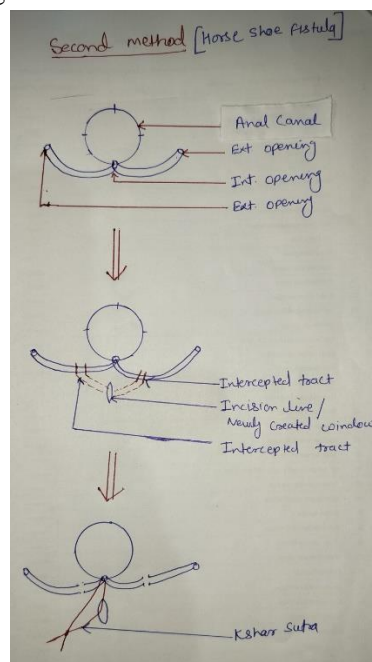 Second method [Horse Shoe Fistula]
Anal Canal
Ext opening
Int. opening
Ext. opening
Intercepted tract
Incision line /
Newly created window
Intercepted tract
Kshar Sutra